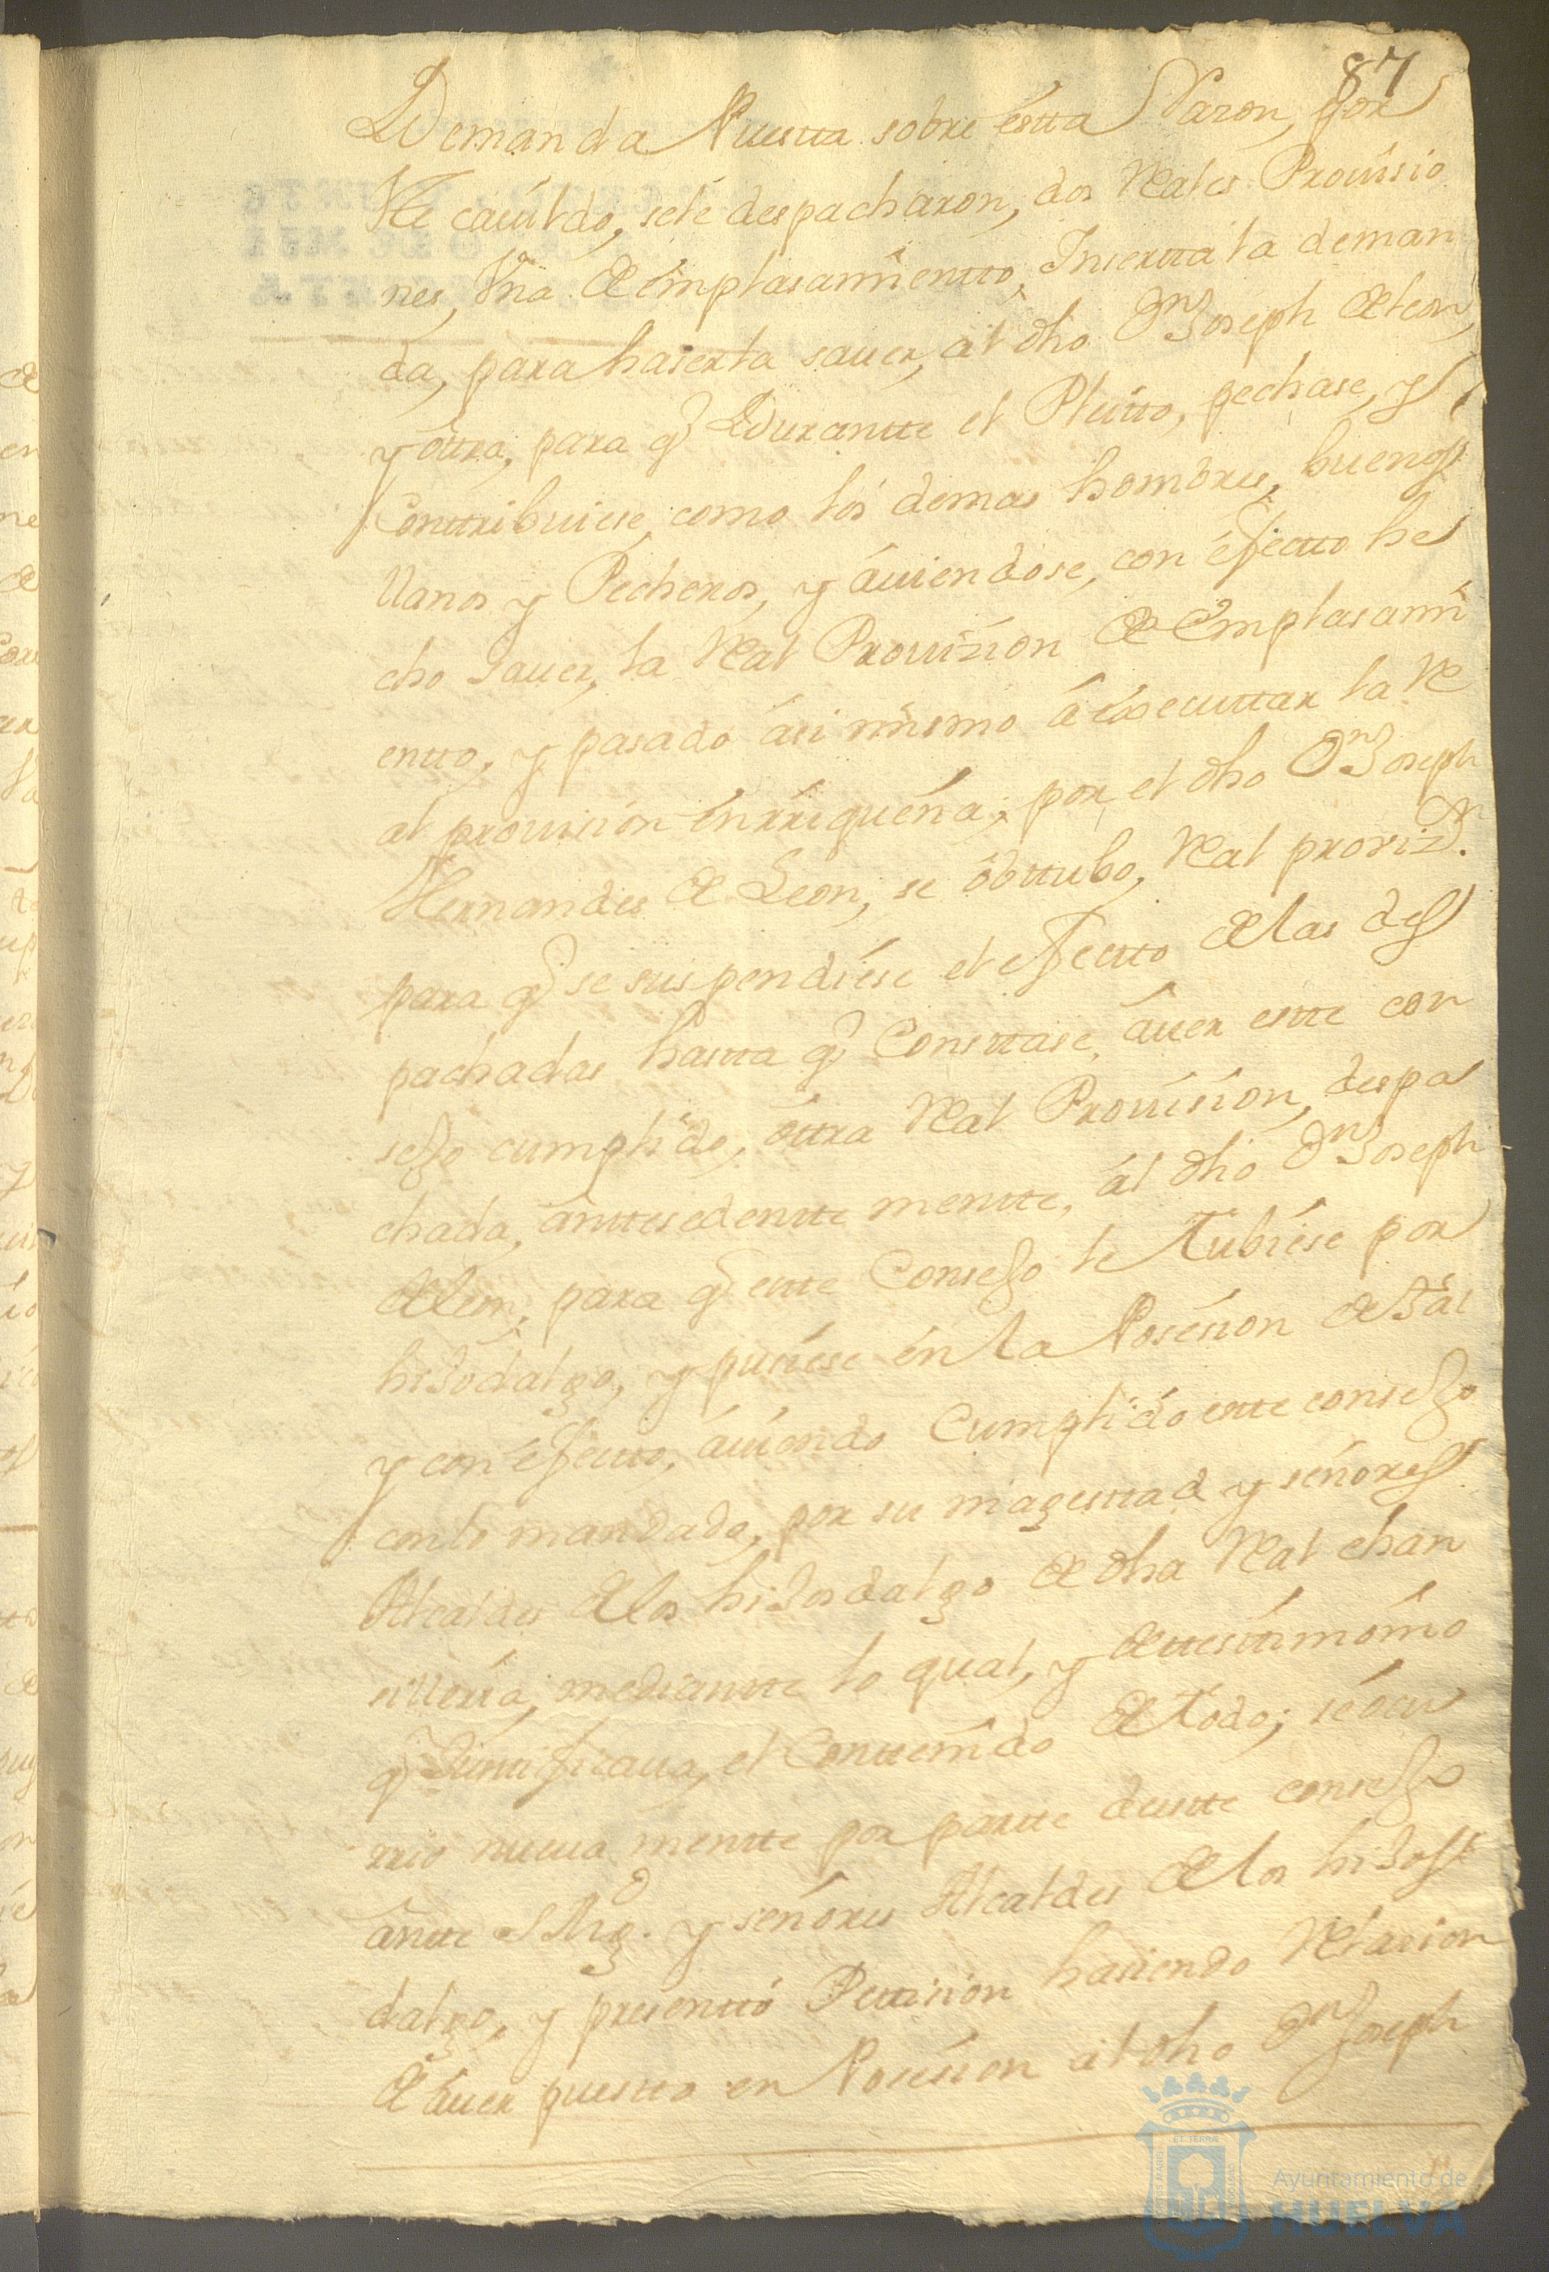 87
Demanda Puestta sobre estta Razon, por
Ste cauildo, sele despacharon, dos Reales Prouisio
nes, Vna de emplasamientto, Inserttta la deman
da, para haserla sauer, al dho Dn Joseph de leon,
y ôttra, para q Durantte el Pleitto, pechase, y
Conttribuiese, como los demas hombres, buenos
llanos y Pecheros, y áuiendose, con éfectto he
cho sauer, la Real Prouizion de Emplasami
entto, y pasado ási mismo á ejecuttar la Re
al prouision énrriqueña; por el dho Dn Joseph
Hernandes de Leon, se óbttubo, Real provizn.
para q se suspendiése el efectto de las des
pachadas hastta q Consttase, áuer estte con
sejo cumplido, ottra Real Prouision, despa
chada, ánttesedentte mentte, ál dho Dn Joseph
de leon, para q estte Consejo le Tubiése por
hijodalgo, y pusiése én la Posésion de tál
y con éfectto, áuiendo Cumplido estte consejo
con lo mandado, por su magesttad y señores
Alcaldes de los hijosdalgo de dha Real chan
silleria, mediantte lo qual, y de ttesttimonio
q Justtificaua, el Conttenido de Todo; se ocu
rrio nueua mentte por partte de estte consejo
ántte S Mgd. y señóres Alcaldes de los hijos
dalgo, y presenttó Pettision hasiendo Relasion
de áuer puestto en Posésion al dho Dn Joseph
Ayuntamiento de
HUELVA